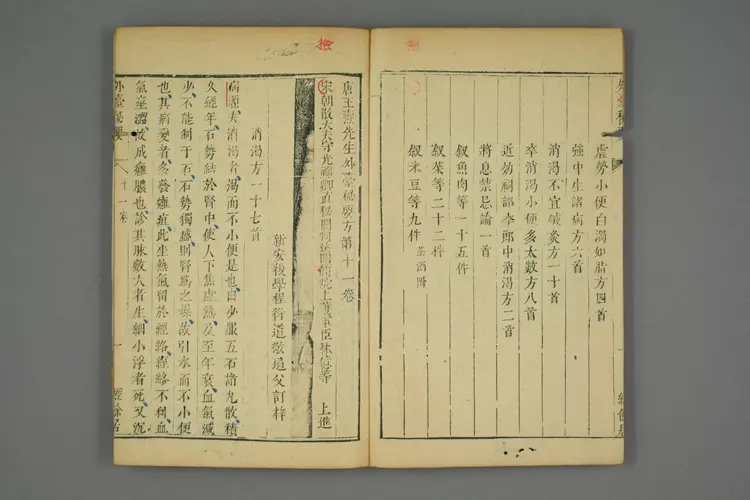 虛勞小便白濁如脂方四首
強中生諸病方六首
消渴不宜鍼灸方一十首
卒消渴小便多太數方八首
近効祠部李郎中消渴方二首
將息禁忌論一首
叙魚肉等一十五件
叙菜等二十二件
叙米豆等九件 茶酒附
唐王燾先生外臺秘要方第十一卷
宋朝散大夫守光祿卿直秘閣判登聞檢院上護軍臣林億等 上進
新安後學程衍道敬通父訂梓
消渴方一十七首
病源夫消渴者渴而不小便是也由少服五石諸丸散積
久經年石勢結於腎中使人下焦虛熱及至年衰血氣減
少不能制于石石勢獨盛則腎爲之燥故引水而不小便
也其病變者多發癰疽此坐熱氣留於經絡經絡不利血
氣壅濇故成癰膿也診其脉數大者生細小浮者死又沉
外臺秘要 十一卷 一 經餘居